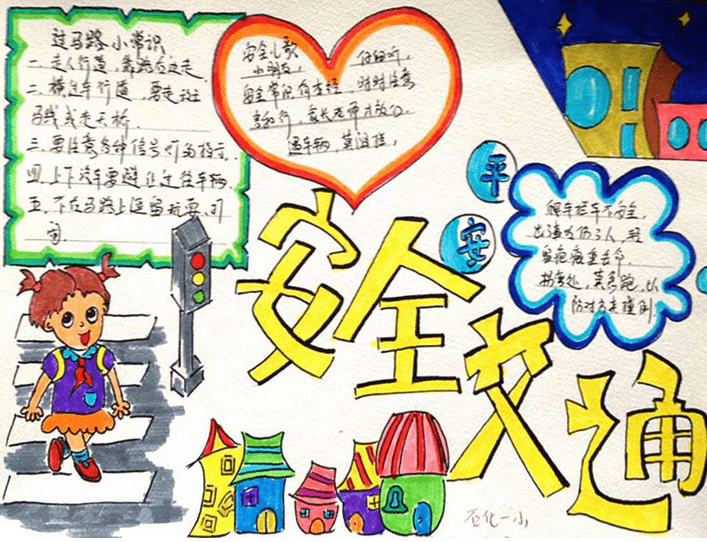 过马路小常识
一.走人行道,靠路右边走.
二.横过车行道,要走斑
马线或走天桥
三.要注意各种信号灯的指示.
四.上下汽车要避让过往车辆.
五.不在马路上逗留玩耍.
安全儿歌
小朋友, 仔细听,
安全常识有本经, 时时注意
家长老师才放心.
遇车辆,莫
平
安
爬车拦车不安全,
出事

莫急跑,以
防对方来撞倒.
安全交通
石化一小